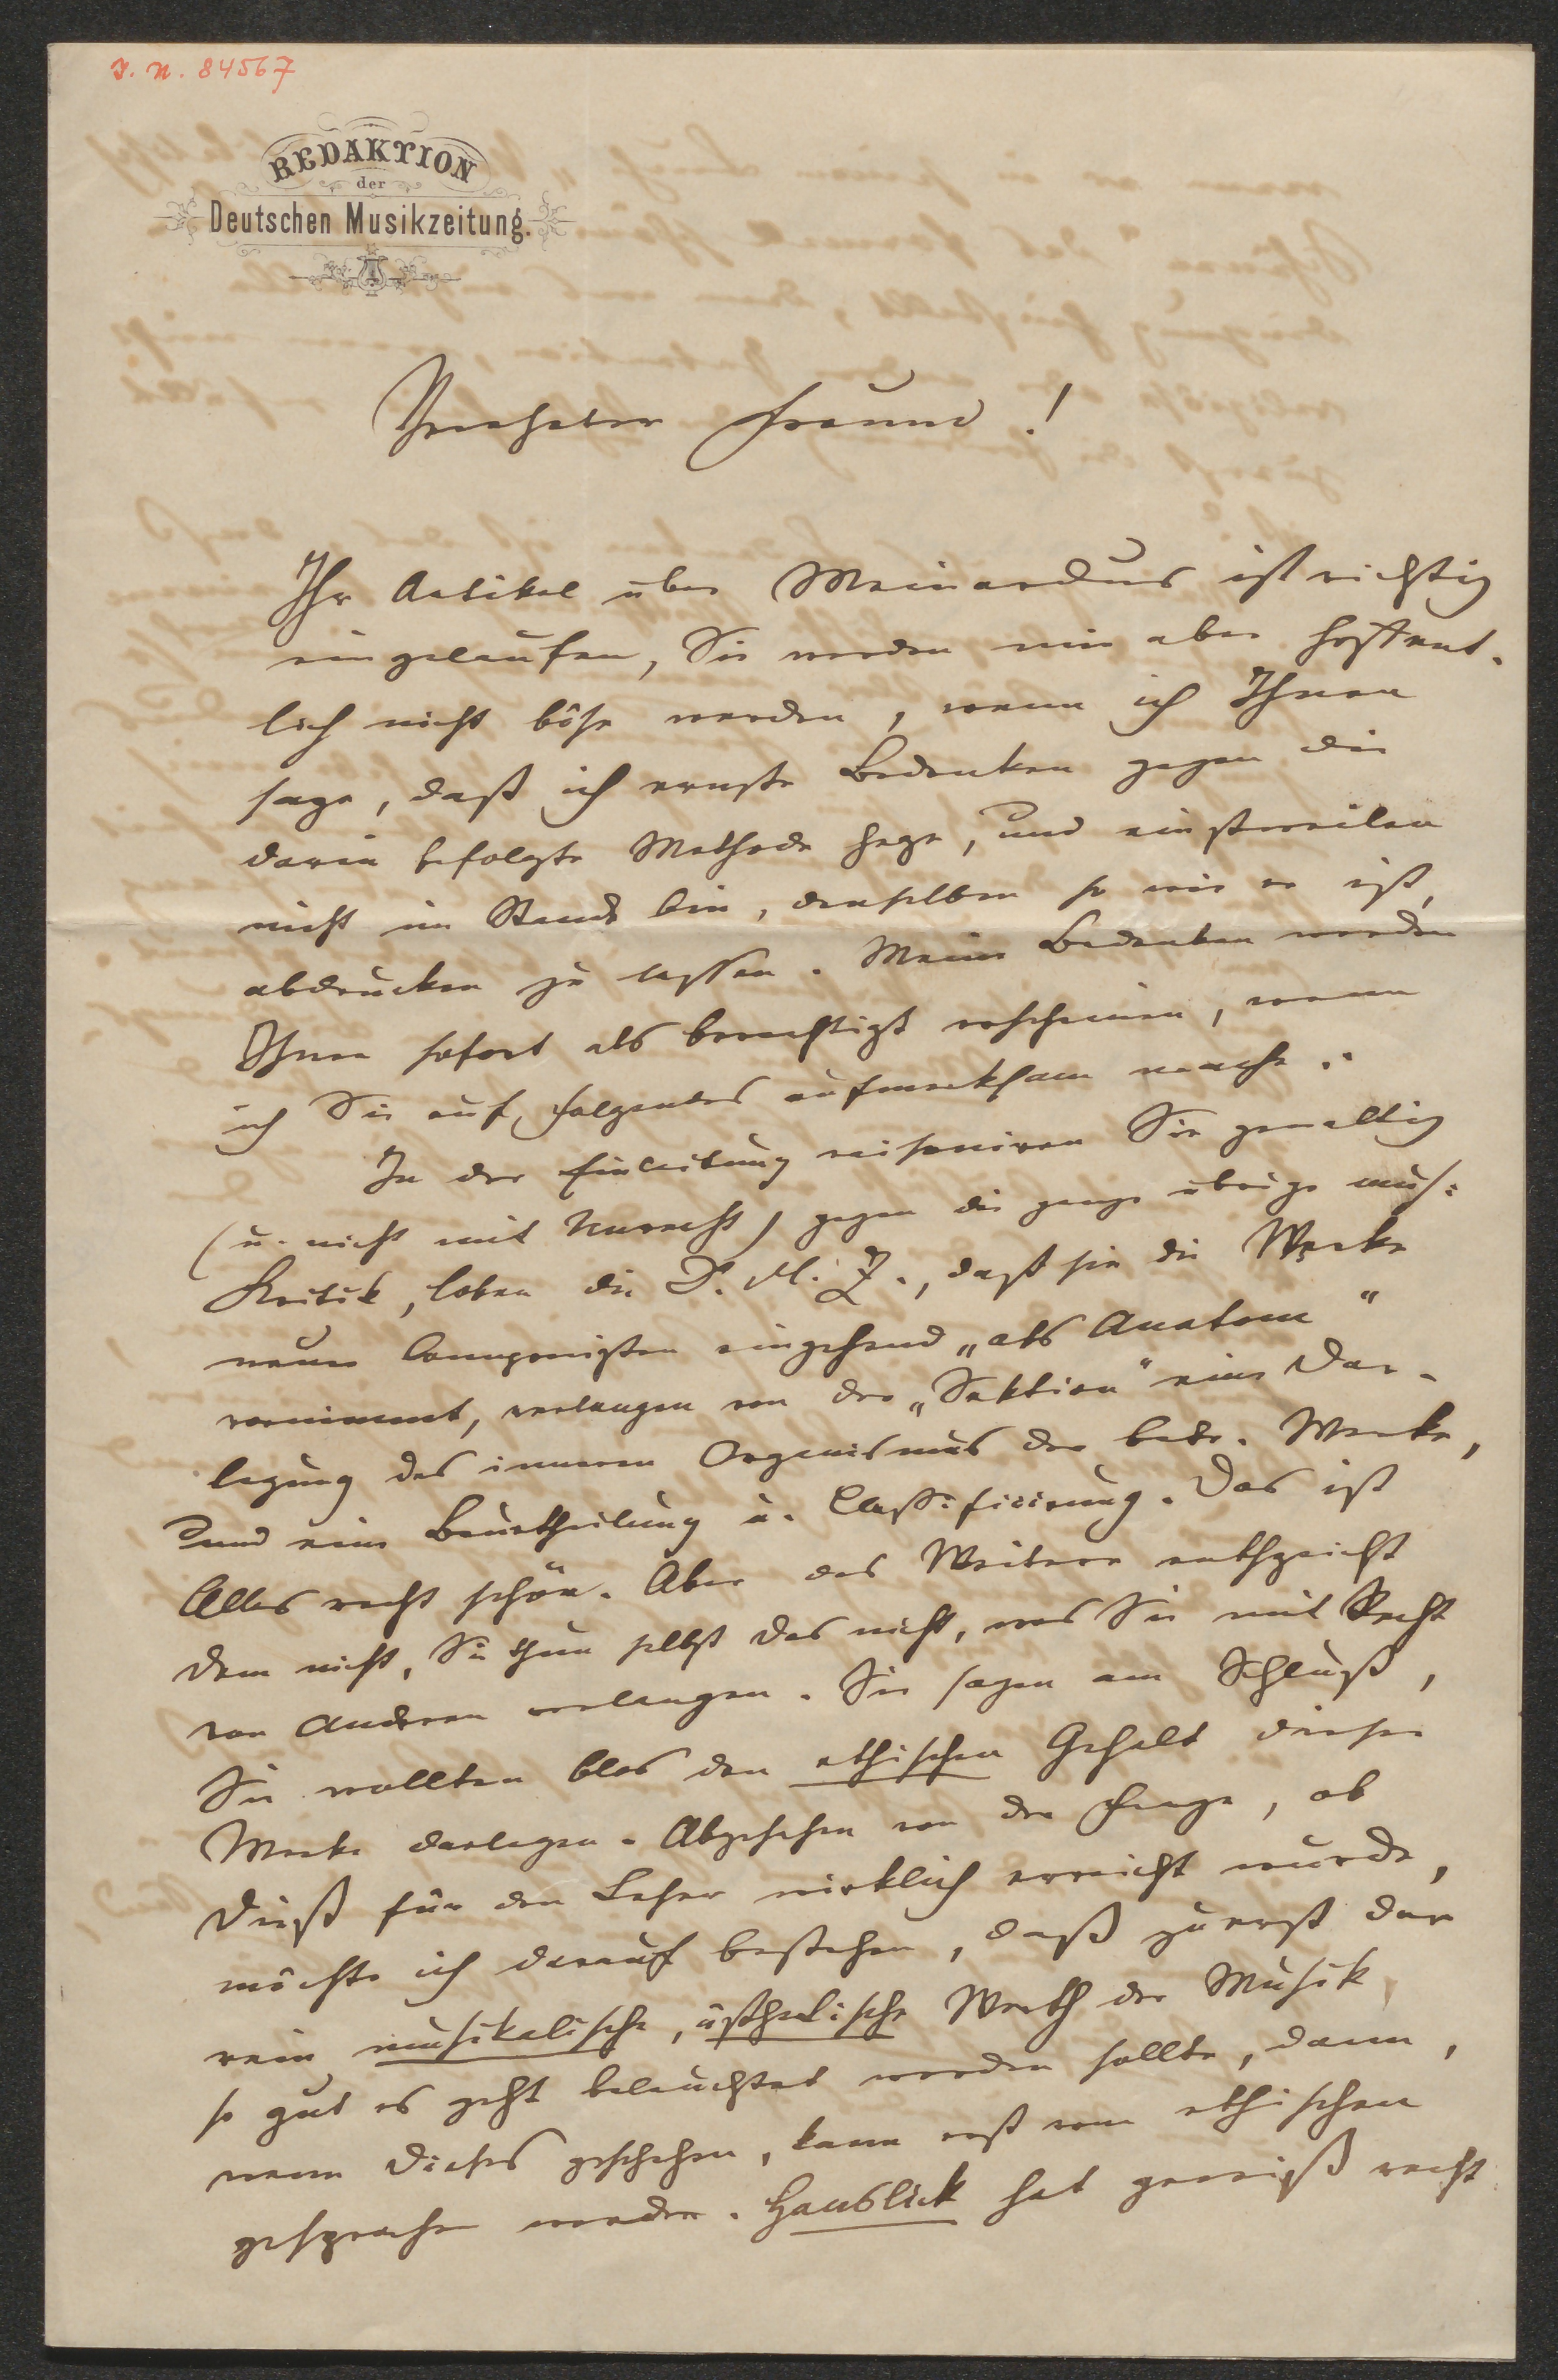 I. N. 84567
REDAKTION
der
Deutschen Musikzeitung.
Verehrter Freund!
Ihr Artikel über Meinardus ist richtig
eingelaufen, Sie werden mir aber hoffent-
lich nicht böse werden, wenn ich Ihnen
sage, daß ich ernste Bedenken gegen die
darin befolgte Methode hege, und einstweilen
nicht im Stande bin, denselben so wie er ist,
abdrucken zu lassen. Meine Bedenken werden
Ihnen sofort als berechtigt erscheinen, wenn
ich Sie auf folgendes aufmerksam mache:
In der Einleitung raisoniren Sie gewaltig
(u. nicht mit Unrecht) gegen die ganze übrige mus:
Kritik, loben die D. M. Z., daß sie die Werke
neuer Componisten eingehend „als Anatom“
vornimmt, verlangen von der „Sektion“ eine Dar-
legung des inneren Organismus der betr. Werke,
und eine Beurtheilung u. Classificirung. Das ist
Alles recht schön. Aber das Weitere entspricht
dem nicht, Sie thun selbst das nicht, was Sie mit Recht
von Anderen verlangen. Sie sagen am Schluß,
Sie wollten blos den ethischen Gehalt dieser
Werke darlegen. Abgesehen von der Frage, ob
dieß für den Leser wirklich erreicht wurde,
möchte ich darauf bestehen, daß zuerst der
rein musikalische, ästhetische Werth der Musik
so gut es geht beleuchtet werden sollte, dann,
wenn dieses geschehen, kann erst vom ethischen
gesprochen werden. Hanslick hat gewiß recht